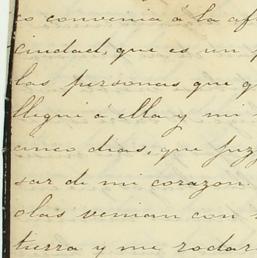 co convenia á la
ciudad, que es un
las personas que
llegué á ella y mi
cinco dias, que
sar de mi corazon.
olas venian con
tierra y me rodar